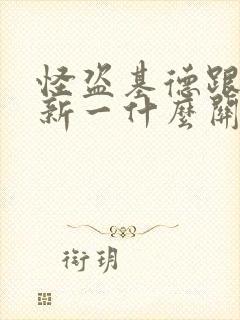 怪盗基德跟
新一什麼關
衔玥